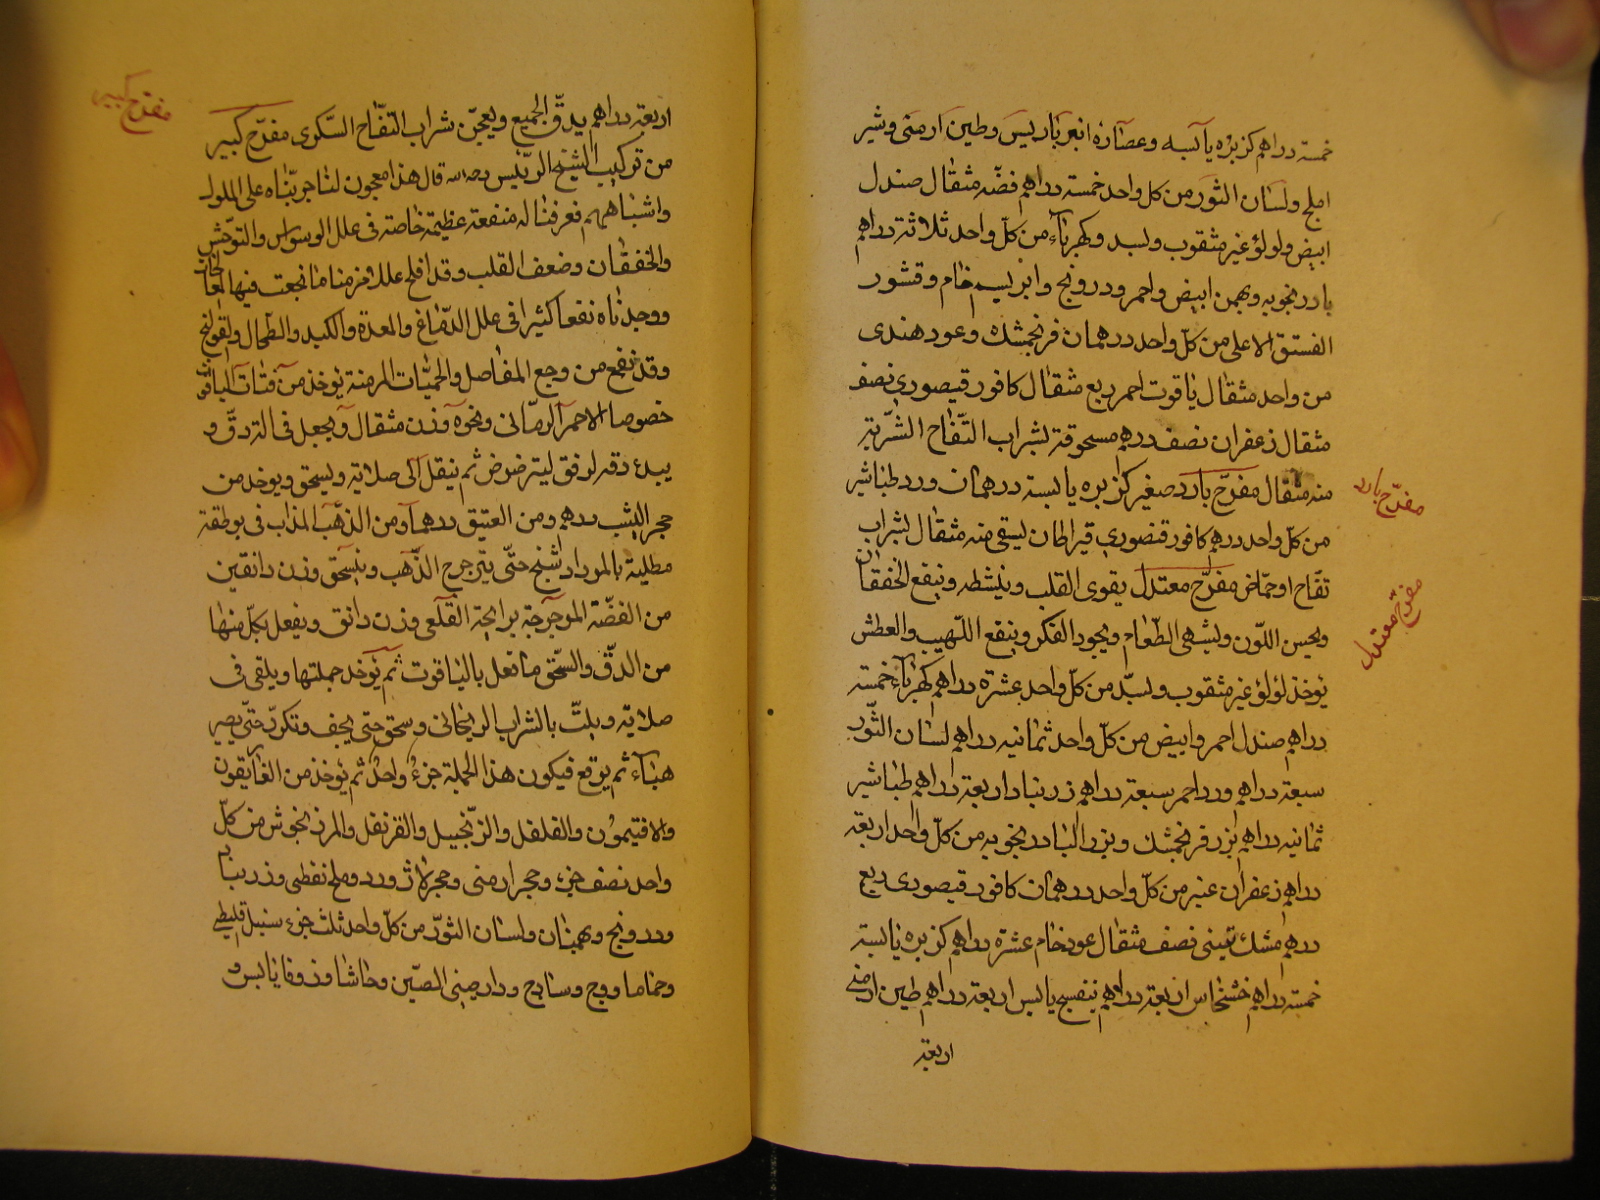 خمسة دراهم كزبره يآبسه وعصاره انبرباريس وطين ارمنى وشير
املج ولسان الثور من كل واحد خمسة دراهم فضّه مثقال صندل
ابيض ولولؤ غير مثقوب وبسد وكهرباء من كلّ واحد ثلاثة دراهم
بادرنجويه وبهمن ابيض واحمر ودرونج وابريسم خام وقشور
الفستق الاعلى من كلّ واحد درهمان فرنجمشك وعود هندى
من واحد مثقال ياقوت احمر ربع مثقال كافور قيصورى نصف
مثقال زعفران نصف درهم مسحوقة بشراب التّفاح الشّربة
منه مثقال مفرّح بارد صغير كزبره يابسة درهمان ورد طباشير
من كلّ واحد درهم كافور قنصورى قيراطان يسقى منه مثقال بشراب
تفّاح او حمّاض مفرّح معتدل يقوى القلب وينشطه وينفع الخفقان
ويحسن اللّون ويشهى الطّعام ويجود الفكر وينفع اللّهيب والعطش
يؤخذ لؤلؤ غير مثقوب وبسّد من كلّ واحد عشرة دراهم كهرباء خمسة
دراهم صندل احمر وابيض من كلّ واحد ثمانيه دراهم لسان الثّور
سبعة دراهم ورد احمر سبعة دراهم زرنباد اربعة دراهم طباشير
ثمانيه دراهم بزر فرنجمشك وبزر البادرنجويه من كلّ واحد اربعة
دراهم زعفران عنبر من كلّ واحد درهمان كافور قيصورى ربع
درهم مشك تبتى نصف مثقال عود خام عشرة دراهم كزبره يابسة
خمسة دراهم خشخاس اربعة دراهم بنفسج يابس اربعة دراهم طين ارمنى
اربعة
مفرّح بارد
مفرّح معتدل
اربعة دراهم يدقّ الجميع ويعجن بشراب التفّاح السّكرى مفرّح كبير
من تركيب الشيخ الرئيس رحمه الله قال هذا معجون لنا جربّناه على الملوك
واشباههم فعرفنا له منفعة عظيمة خاصة فى علل الوسواس والتوحّش
والخفقان وضعف القلب وقد افلح عللا مزمنا ما نجعت فيها
ووجدناه نفعا كثيرا فى علل الدّماغ والمعدة والكبد والطحال والقولنج
وقد نفع من وجع المفاصل والحميّات المزمنة يؤخذ من فتات الياقوت
خصوصا الاحمر الرمّانى ونحوه وزن مثقال ويجعل فى الدقّ و
يبدء دقه لرفق ليترضرض ثم ينقل الى صلاية ويسحق ويوخذ من
حجر اليشب درهم ومن العتيق درهما ومن الذهب المذاب فى بوطقة
مطلية بالمرداسنج حتّى يترجرج الذّهب وينسحق وزن دانقين
من الفضّة الموجرجة برايحة القلعى وزن دانق ويفعل بكلّ منها
من الدقّ والسّحق ما تفعل بالياقوت ثم يؤخذ جملتها ويلقى فى
صلاية ويلتّ بالشراب الريحانى وسحق حتى يجف وتكررّ حتّى يصير
هباء ثم يرفع فيكون هذا الجملة جزءٌ واحدٌ ثم يؤخذ من الغاريقون
والافتيمون والفلفل والزنجبيل والقرنفل والمرزنجوش من كلّ
واحد نصف جزء وحجر ارمنى وحجر لاژورد وملح نفطى وزرنباد
ودرونج وبهمنان ولسان الثورّ من كلّ واحد ثلث جزء سنبل قليطى
وحماما ووج وساذج ودارصينى الصّين وحاشا وزوفا يابس و
مفرّح كبير